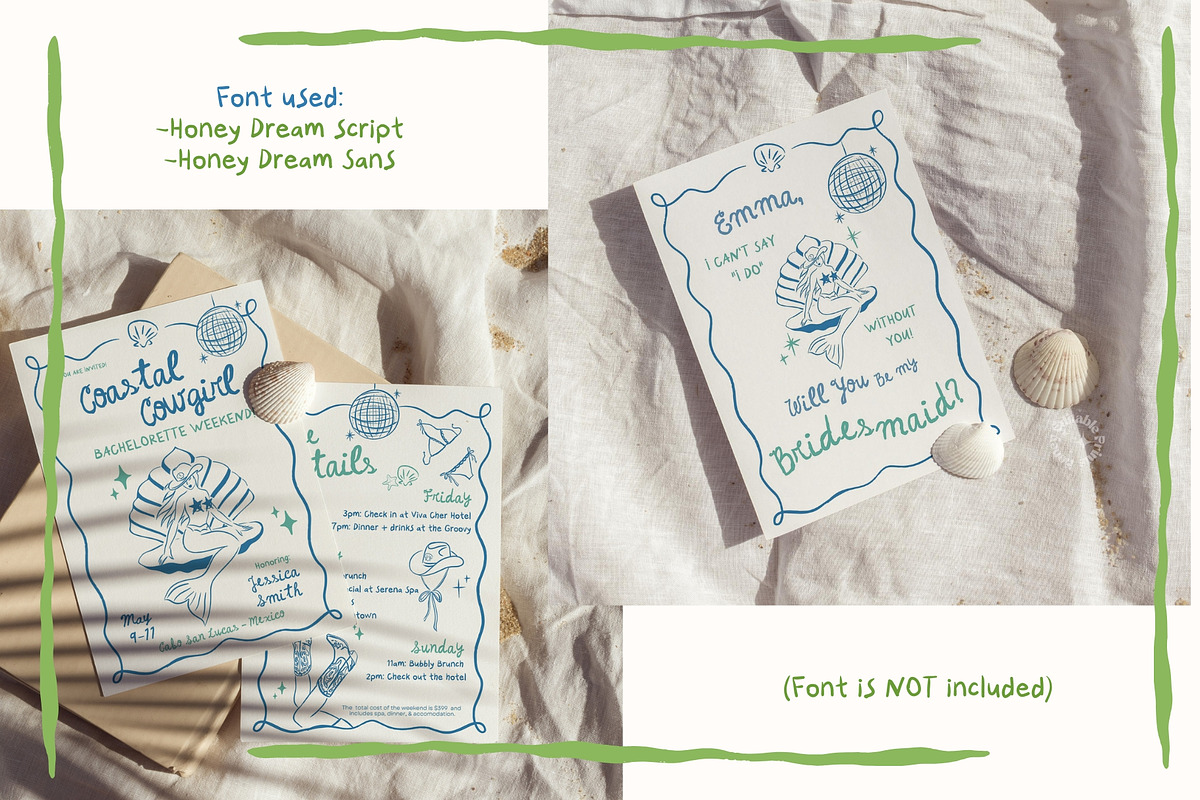 Font used:
-Honey Dream Script
-Honey Dream Sans
Emma,
i CAN'T SAY
"i DO"
WITHOUT
YOU!
Will You Be my
Bridesmaid?
YOU ARE INVITED!
Coastal
Cowgirl
BACHELORETTE WEEKEND
Honoring:
Jessica
Smith
May
9-11
Cabo San Lucas - Mexico
e
tails
Friday
3pm: Check in at Viva Cher Hotel
7pm: Dinner + drinks at the Groovy
at Serena Spa
Sunday
11am: Bubbly Brunch
2pm: Check out the hotel
The total cost of the weekend is $399 and
includes spa, dinner, & accomodation.
(Font is NOT included)